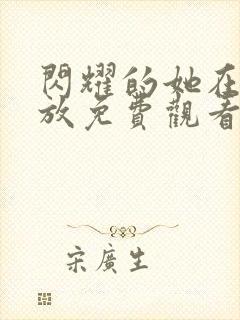 閃耀的她在
放免費觀看
宋廣生